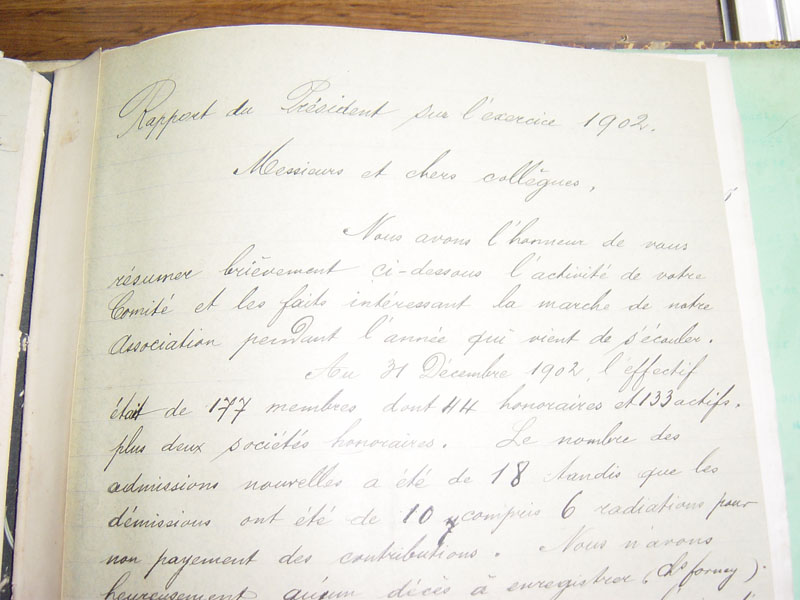 Rapport du Président sur l'exercice 1902.
Messieurs et chers collègues,
Nous avons l'honneur de vous
résumer brièvement ci-dessous l'activité de votre
Comité et les faits intéressant la marche de notre
Association pendant l'année qui vient de s'écouler.
Au 31 Décembre 1902, l'effectif
était de 177 membres dont 44 honoraires et 133 actifs.
plus deux sociétés honoraires. Le nombre des
admissions nouvelles a été de 18 tandis que les
démissions ont été de 10 y compris 6 radiations pour
non payement des contributions. Nous n'avons
heureusement qu'un décès à enregistrer